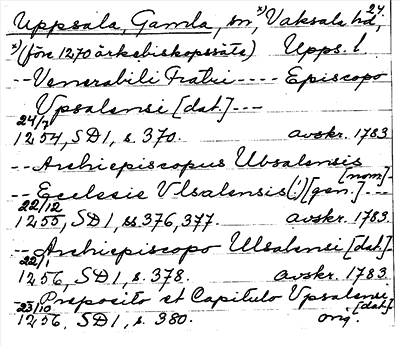 Uppsala, Gamla, sn,ˣ⁾ Vaksala hd, 24
x) (före 1270 ärkebiskopssäte) Upps. l.
-- Venerabili Fratri ---- Episcopo
Vpsalensi [dat.] ---
24/7
1254, SD1, s. 370. avskr. 1783
-- Archiepiscopus Ubsalensis
[nom]
-- Ecclesie Vlsalensis (!) [gen.] ---
22/12
1255, SD1, ss 376, 377. avskr. 1783.
-- Archiepiscopo Ulsalensi [dat.]
22/1
1256, SD1, s. 378. avskr. 1783
-- Preposito et Capitulo Vpsalensi
[dat.]
23/10
1256, SD1, s. 380. orig.